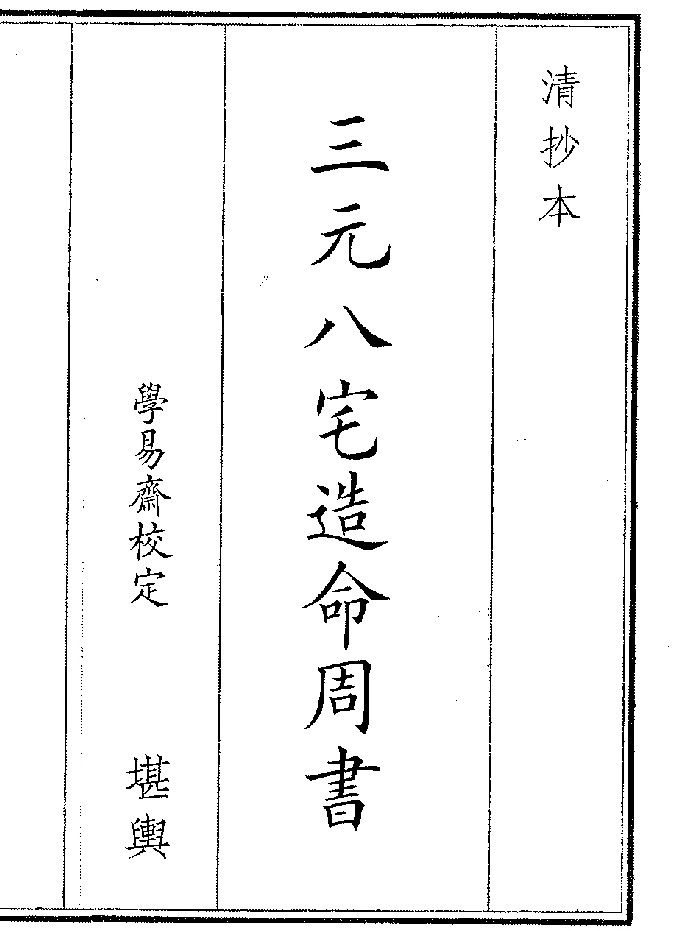 清抄本
三元八宅造命周書
學易齋校定
堪輿